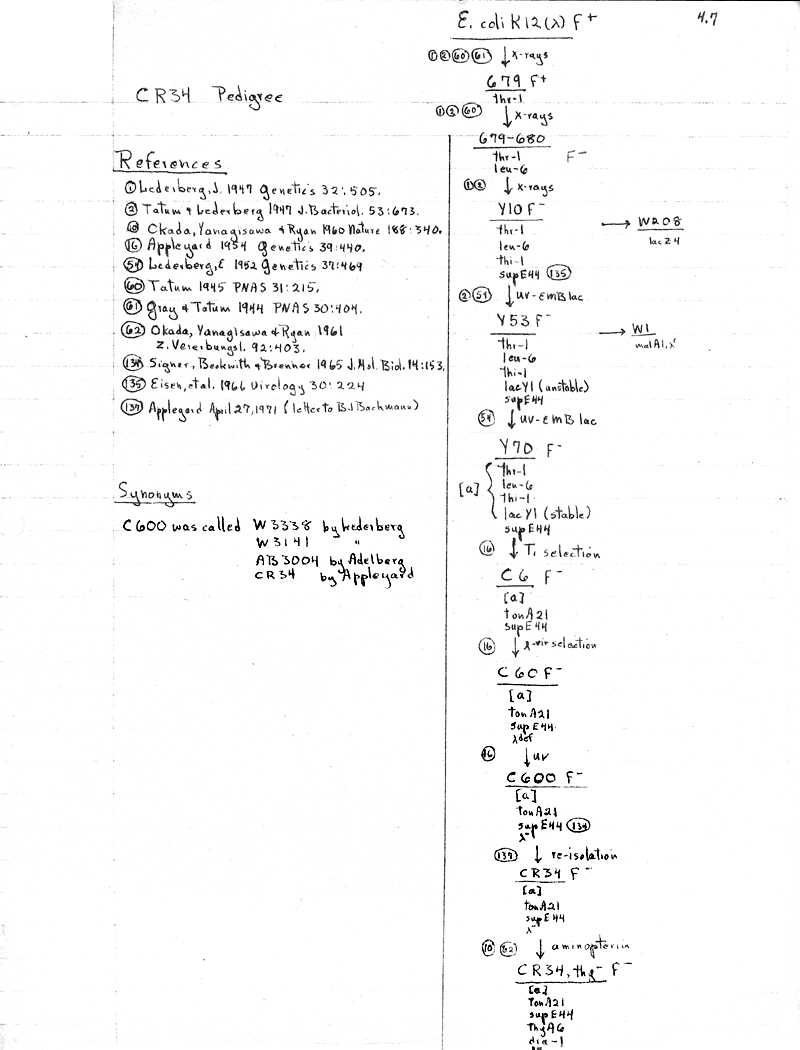 4.7
CR34 Pedigree
References
① Lederberg, J. 1947 Genetics 32:505.
② Tatum & Lederberg 1947 J. Bacteriol. 53:673.
⑩ Okada, Yanagisawa & Ryan 1960 Nature 188:340.
⑯ Appleyard 1954 Genetics 39:440.
(54) Lederberg, E 1952 Genetics 37:469
(60) Tatum 1945 PNAS 31:215.
(61) Gray & Tatum 1944 PNAS 30:404.
(62) Okada, Yanagisawa & Ryan 1961
Z. Vererbungsl. 92:403.
(134) Signer, Beckwith & Brenner 1965 J. Mol. Biol. 14:153.
(135) Eisen, et al. 1966 Virology 30:224
(139) Appleyard April 27, 1971 (letter to BJ Bachmann)
Synonyms
C600 was called W3338 by Lederberg
W3141 "
AB3004 by Adelberg
CR34 by Appleyard
E. coli K12(λ) F⁺
① ② (60) (61) ↓ x-rays
679 F⁺
thr-1
① ② (60) ↓ x-rays
679-680
thr-1 F⁻
leu-6
① ② ↓ x-rays
Y10 F⁻ → W208
thr-1 lacZ4
leu-6
thi-1
supE44 (135)
② (54) ↓ UV-EMB lac
Y53 F⁻ → W1
thr-1 malA1, λʳ
leu-6
thi-1
lacY1 (unstable)
supE44
(54) ↓ UV-EMB lac
Y70 F⁻
[a] { thr-1
leu-6
thi-1
lacY1 (stable)
supE44
⑯ ↓ T₁ selection
C6 F⁻
[a]
tonA21
supE44
⑯ ↓ λ-vir selection
C60 F⁻
[a]
tonA21
supE44
λdef
⑯ ↓ UV
C600 F⁻
[a]
tonA21
supE44 (134)
λ⁻
(139) ↓ re-isolation
CR34 F⁻
[a]
tonA21
supE44
λ⁻
⑩ (62) ↓ aminopterin
CR34, thy⁻ F⁻
[a]
tonA21
supE44
ThyA6
dra-1